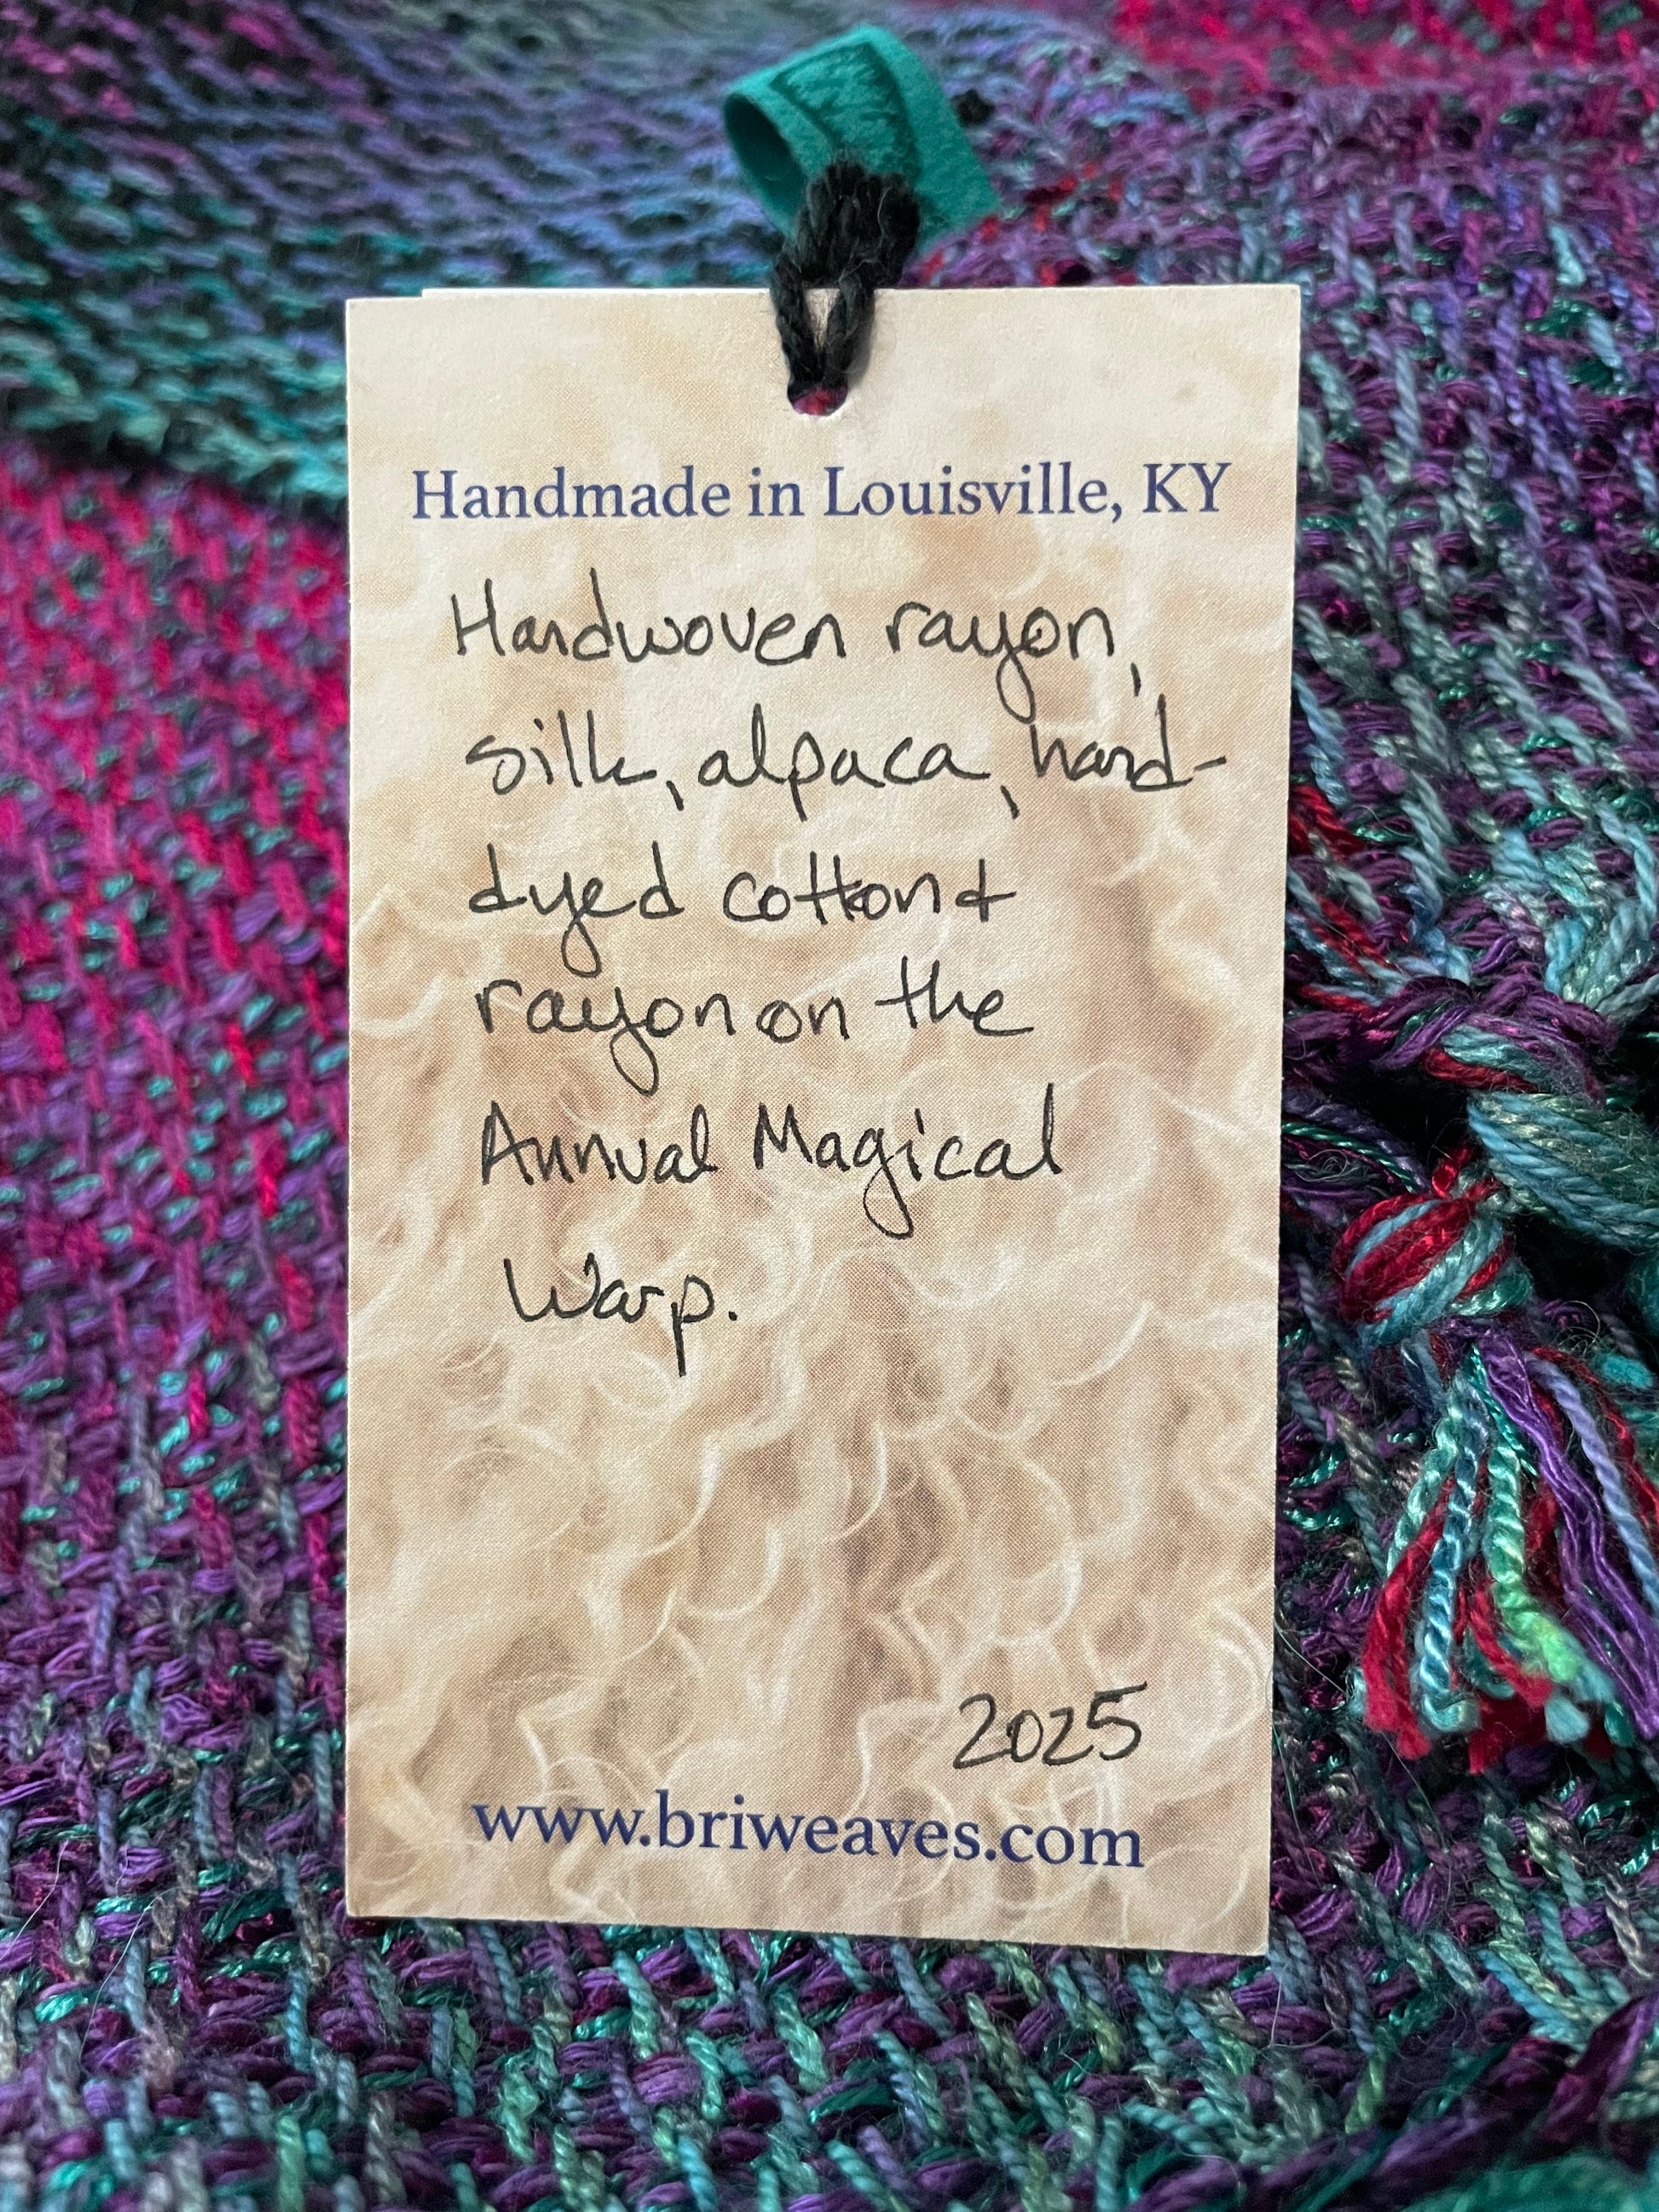 Handmade in Louisville, KY
Handwoven rayon,
silk, alpaca, hand-
dyed cotton &
rayon on the
Annual Magical
Warp.
2025
www.briweaves.com